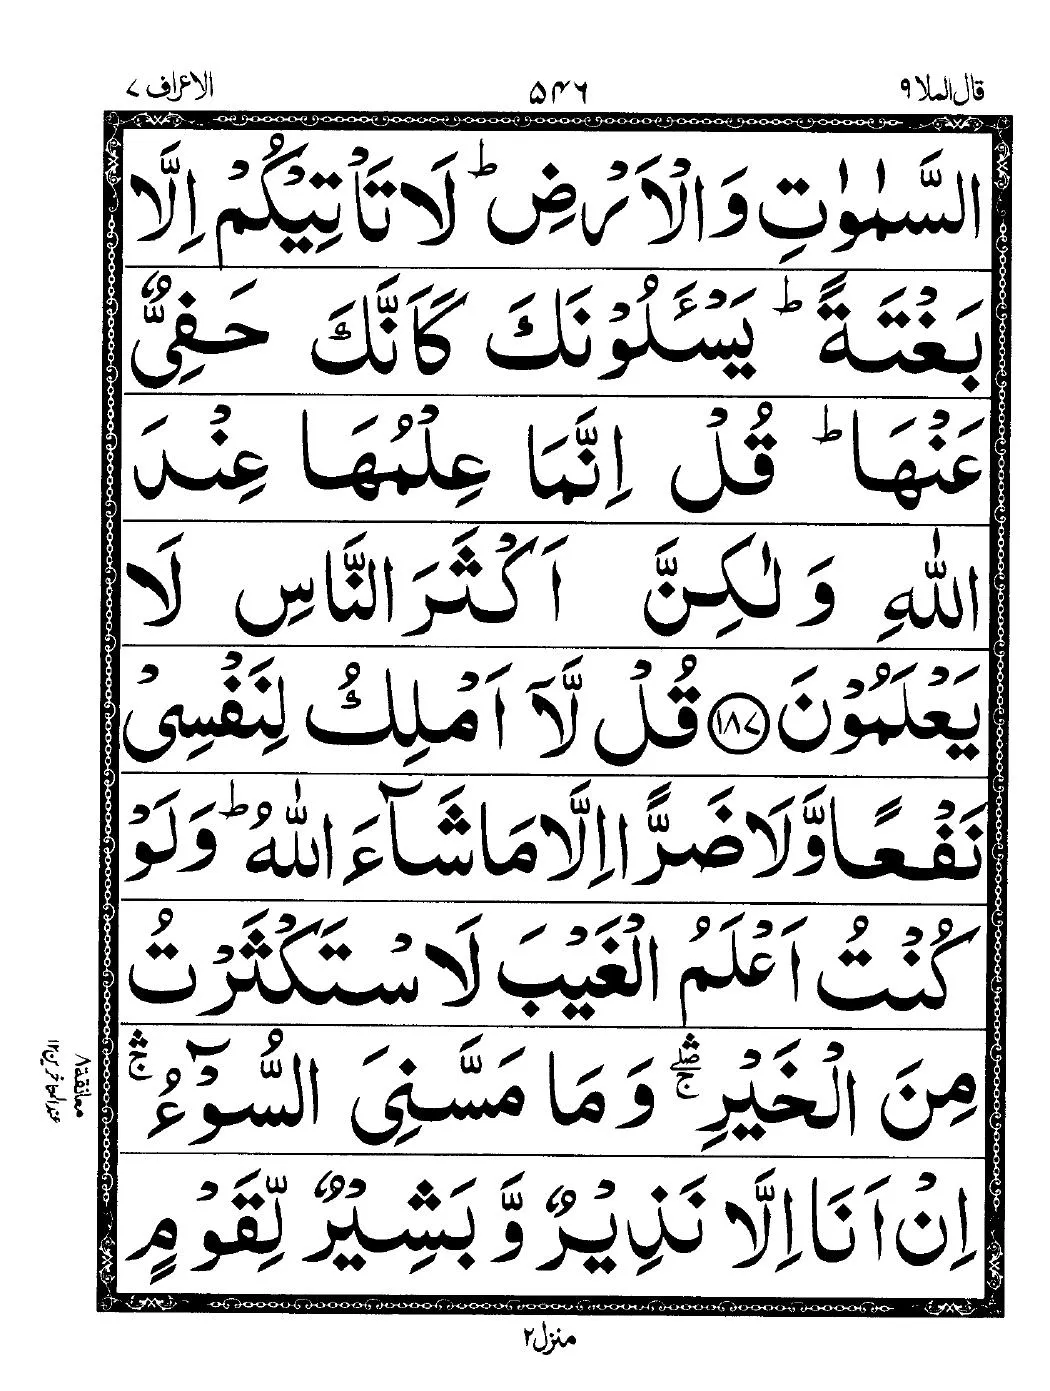 قال الملا ٩ ۵۴۶ الاعراف ۷
السَّمٰوٰتِ وَالْاَرْضِ ؕ لَا تَاْتِیْكُمْ اِلَّا
بَغْتَةً ؕ یَسْـَٔلُوْنَكَ كَاَنَّكَ حَفِیٌّ
عَنْهَا ؕ قُلْ اِنَّمَا عِلْمُهَا عِنْدَ
اللّٰهِ وَلٰكِنَّ اَكْثَرَ النَّاسِ لَا
یَعْلَمُوْنَ ﴿۱۸۷﴾ قُلْ لَّاۤ اَمْلِكُ لِنَفْسِیْ
نَفْعًا وَّلَا ضَرًّا اِلَّا مَا شَآءَ اللّٰهُ ؕ وَلَوْ
كُنْتُ اَعْلَمُ الْغَیْبَ لَاسْتَكْثَرْتُ
مِنَ الْخَیْرِ ۛۚۖ وَمَا مَسَّنِیَ السُّوْٓءُ ۛۚ
اِنْ اَنَا اِلَّا نَذِیْرٌ وَّبَشِیْرٌ لِّقَوْمٍ
معانقة ۸
عند المتاخرین ۱۲
منزل ۲